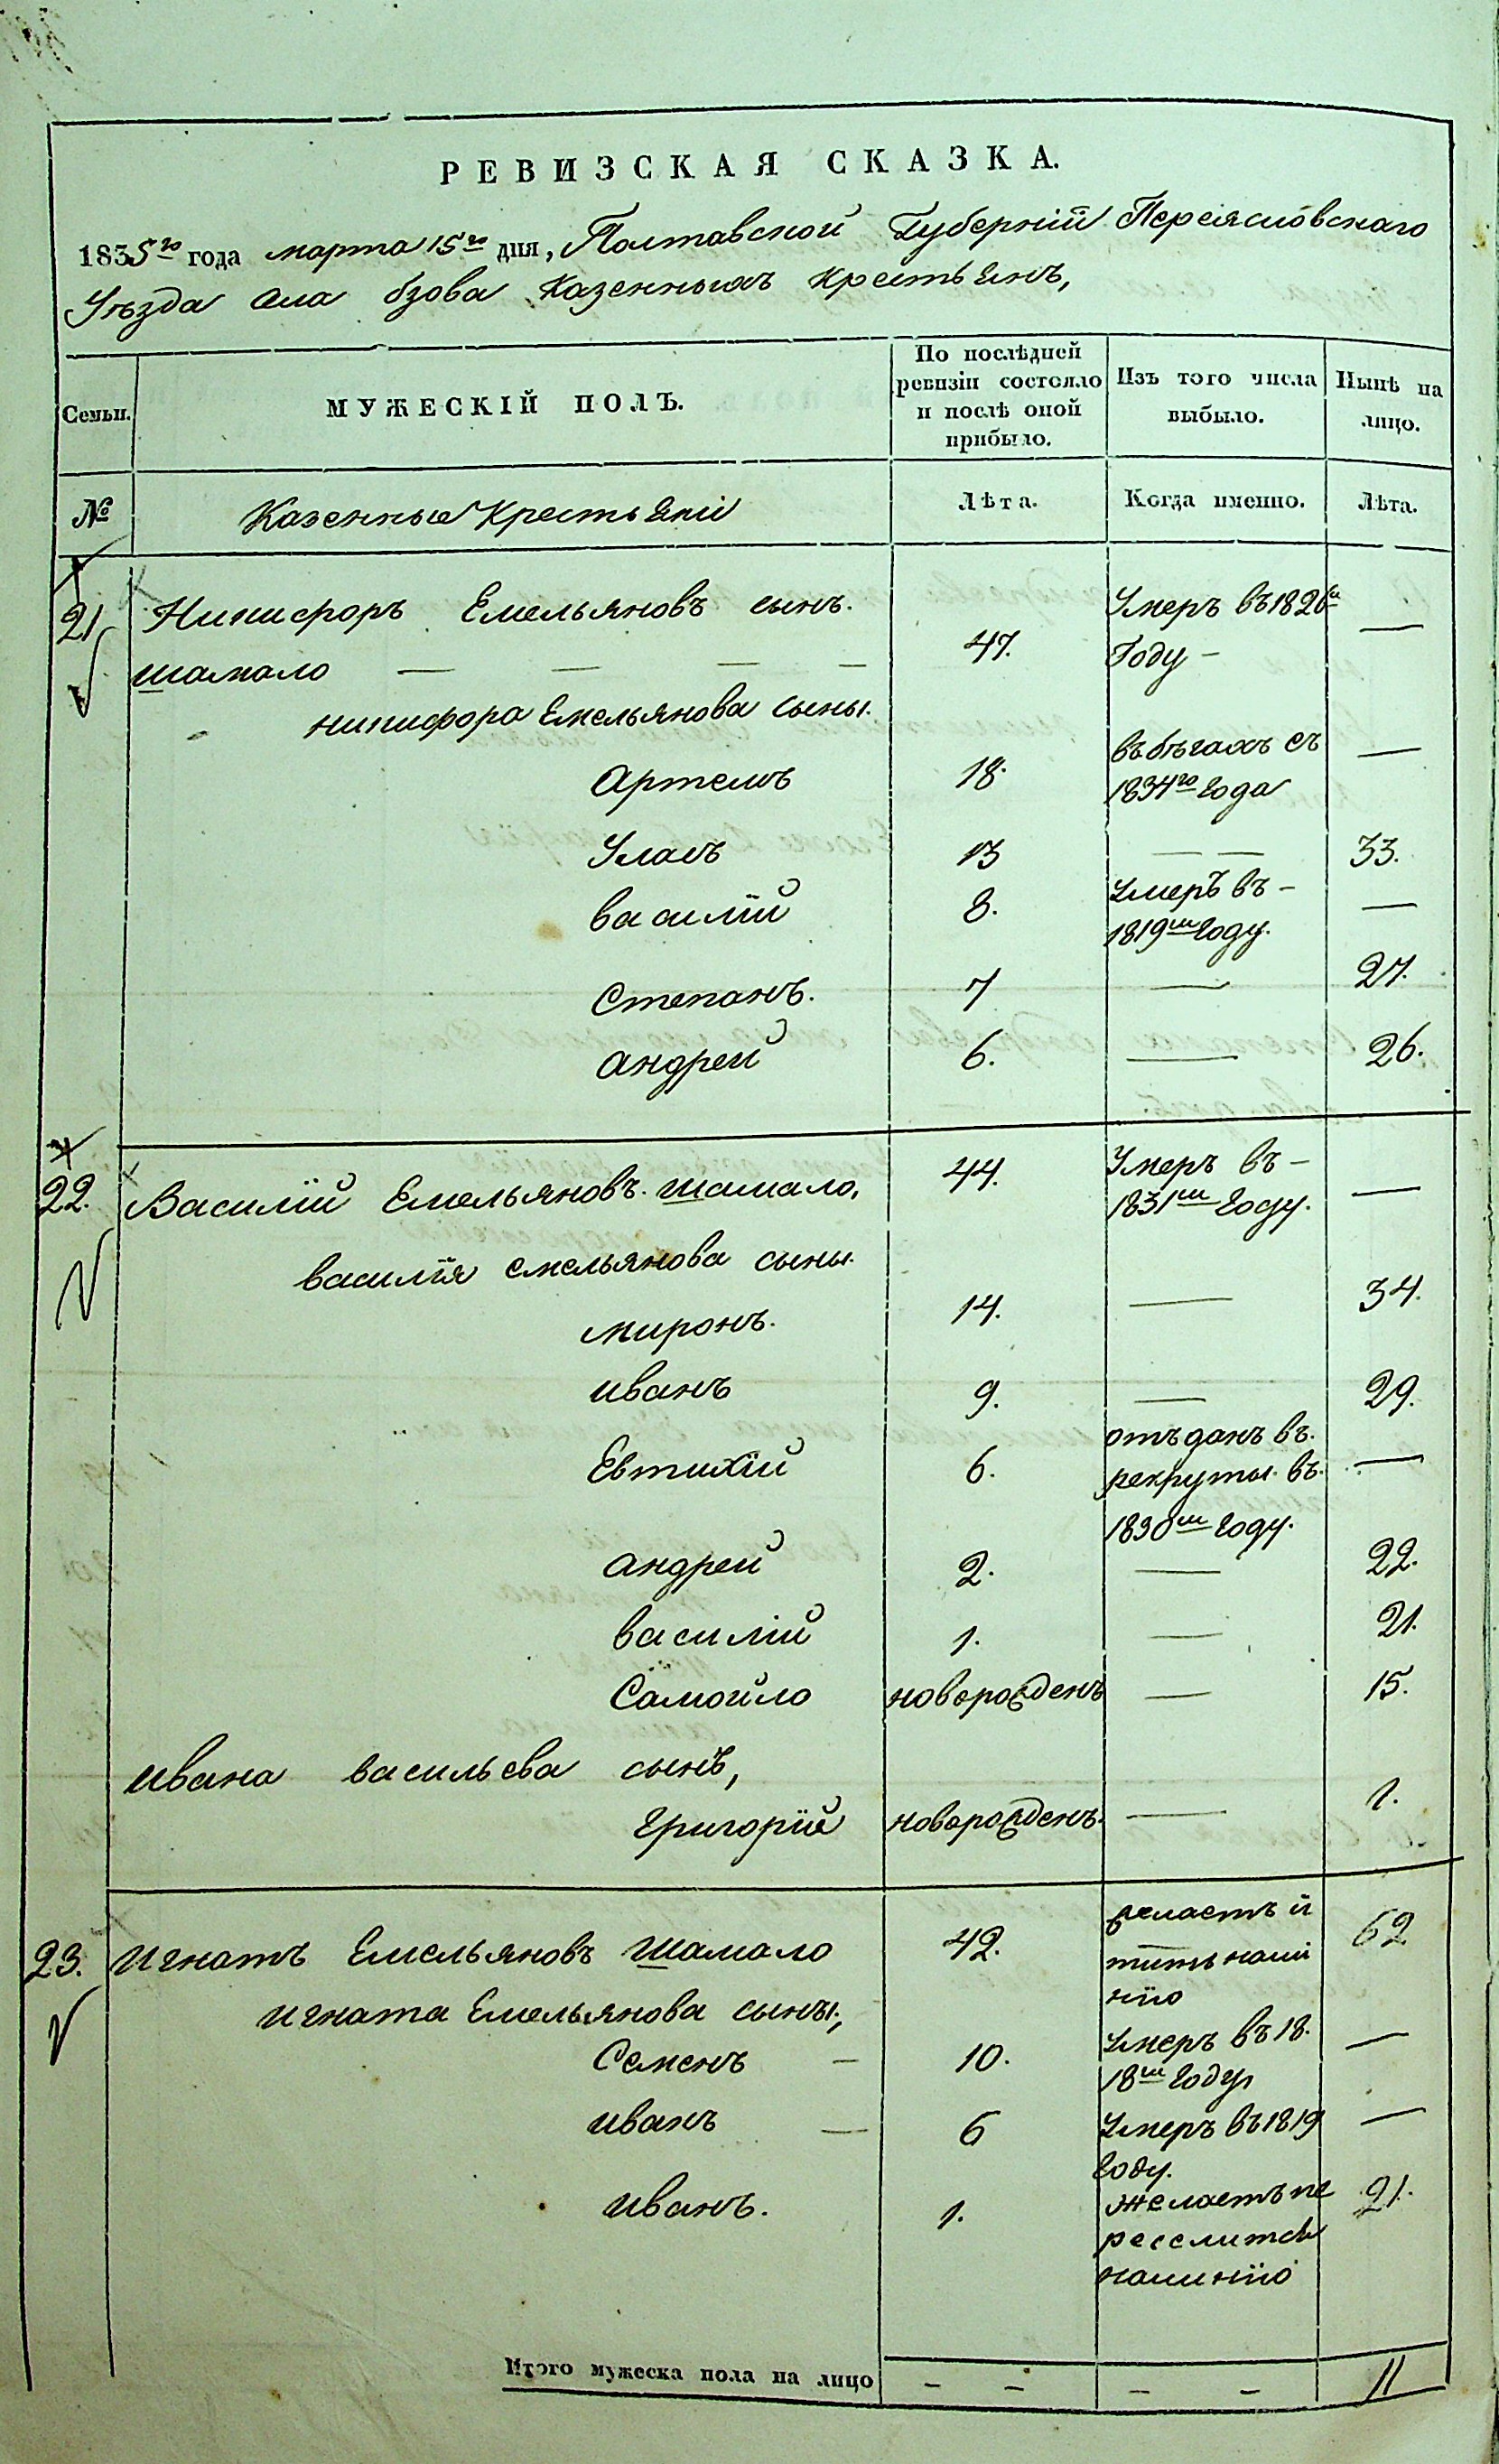 РЕВИЗСКАЯ СКАЗКА.
1835го года марта 15го дня, Полтавской Губерніи Переясловскаго
Уѣзда Села бзова Казенныхъ Крестьянъ,
Семьи.
МУЖЕСКІЙ ПОЛЪ.
По послѣдней
ревизіи состояло
и послѣ оной
прибыло.
Изъ того числа
выбыло.
Нынѣ на
лицо.
№
Казенные Крестьяні
Лѣта.
Когда именно.
Лѣта.
21 Никифоръ Емельяновъ сынъ. Умеръ въ 1826м
шамало — — — — 47. Году — —
никифора Емельянова сыны.
Артемъ 18. въ бѣгахъ съ —
1834го года
Уласъ 13 — — 33.
василій 8. Умеръ въ — —
1819м Году.
Степанъ. 7 — 27.
андрей 6. — 26.
22. Василій Емельяновъ. шамало, 44. Умеръ въ — —
1831м Году.
василія емельянова сыны.
миронъ. 14. — 34.
иванъ 9. — 29.
Евтихій 6. отъданъ въ. —
рекруты. въ.
1830м Году.
андрей 2. — 22.
василій 1. — 21.
Самойло новорожденъ — 15.
ивана васильева сынъ,
Григорій новорожденъ. — 1.
23. Игнатъ Емельяновъ Шамало 42. 62
нію
игната Емельянова сыны,
Семенъ — 10. Умеръ въ 18. —
18м Году
иванъ — 6 Умеръ въ 1819 —
Году.
иванъ. 1. желаетъ пе 21.
реселитса
налинію
Итого мужеска пола на лицо — — — — 11